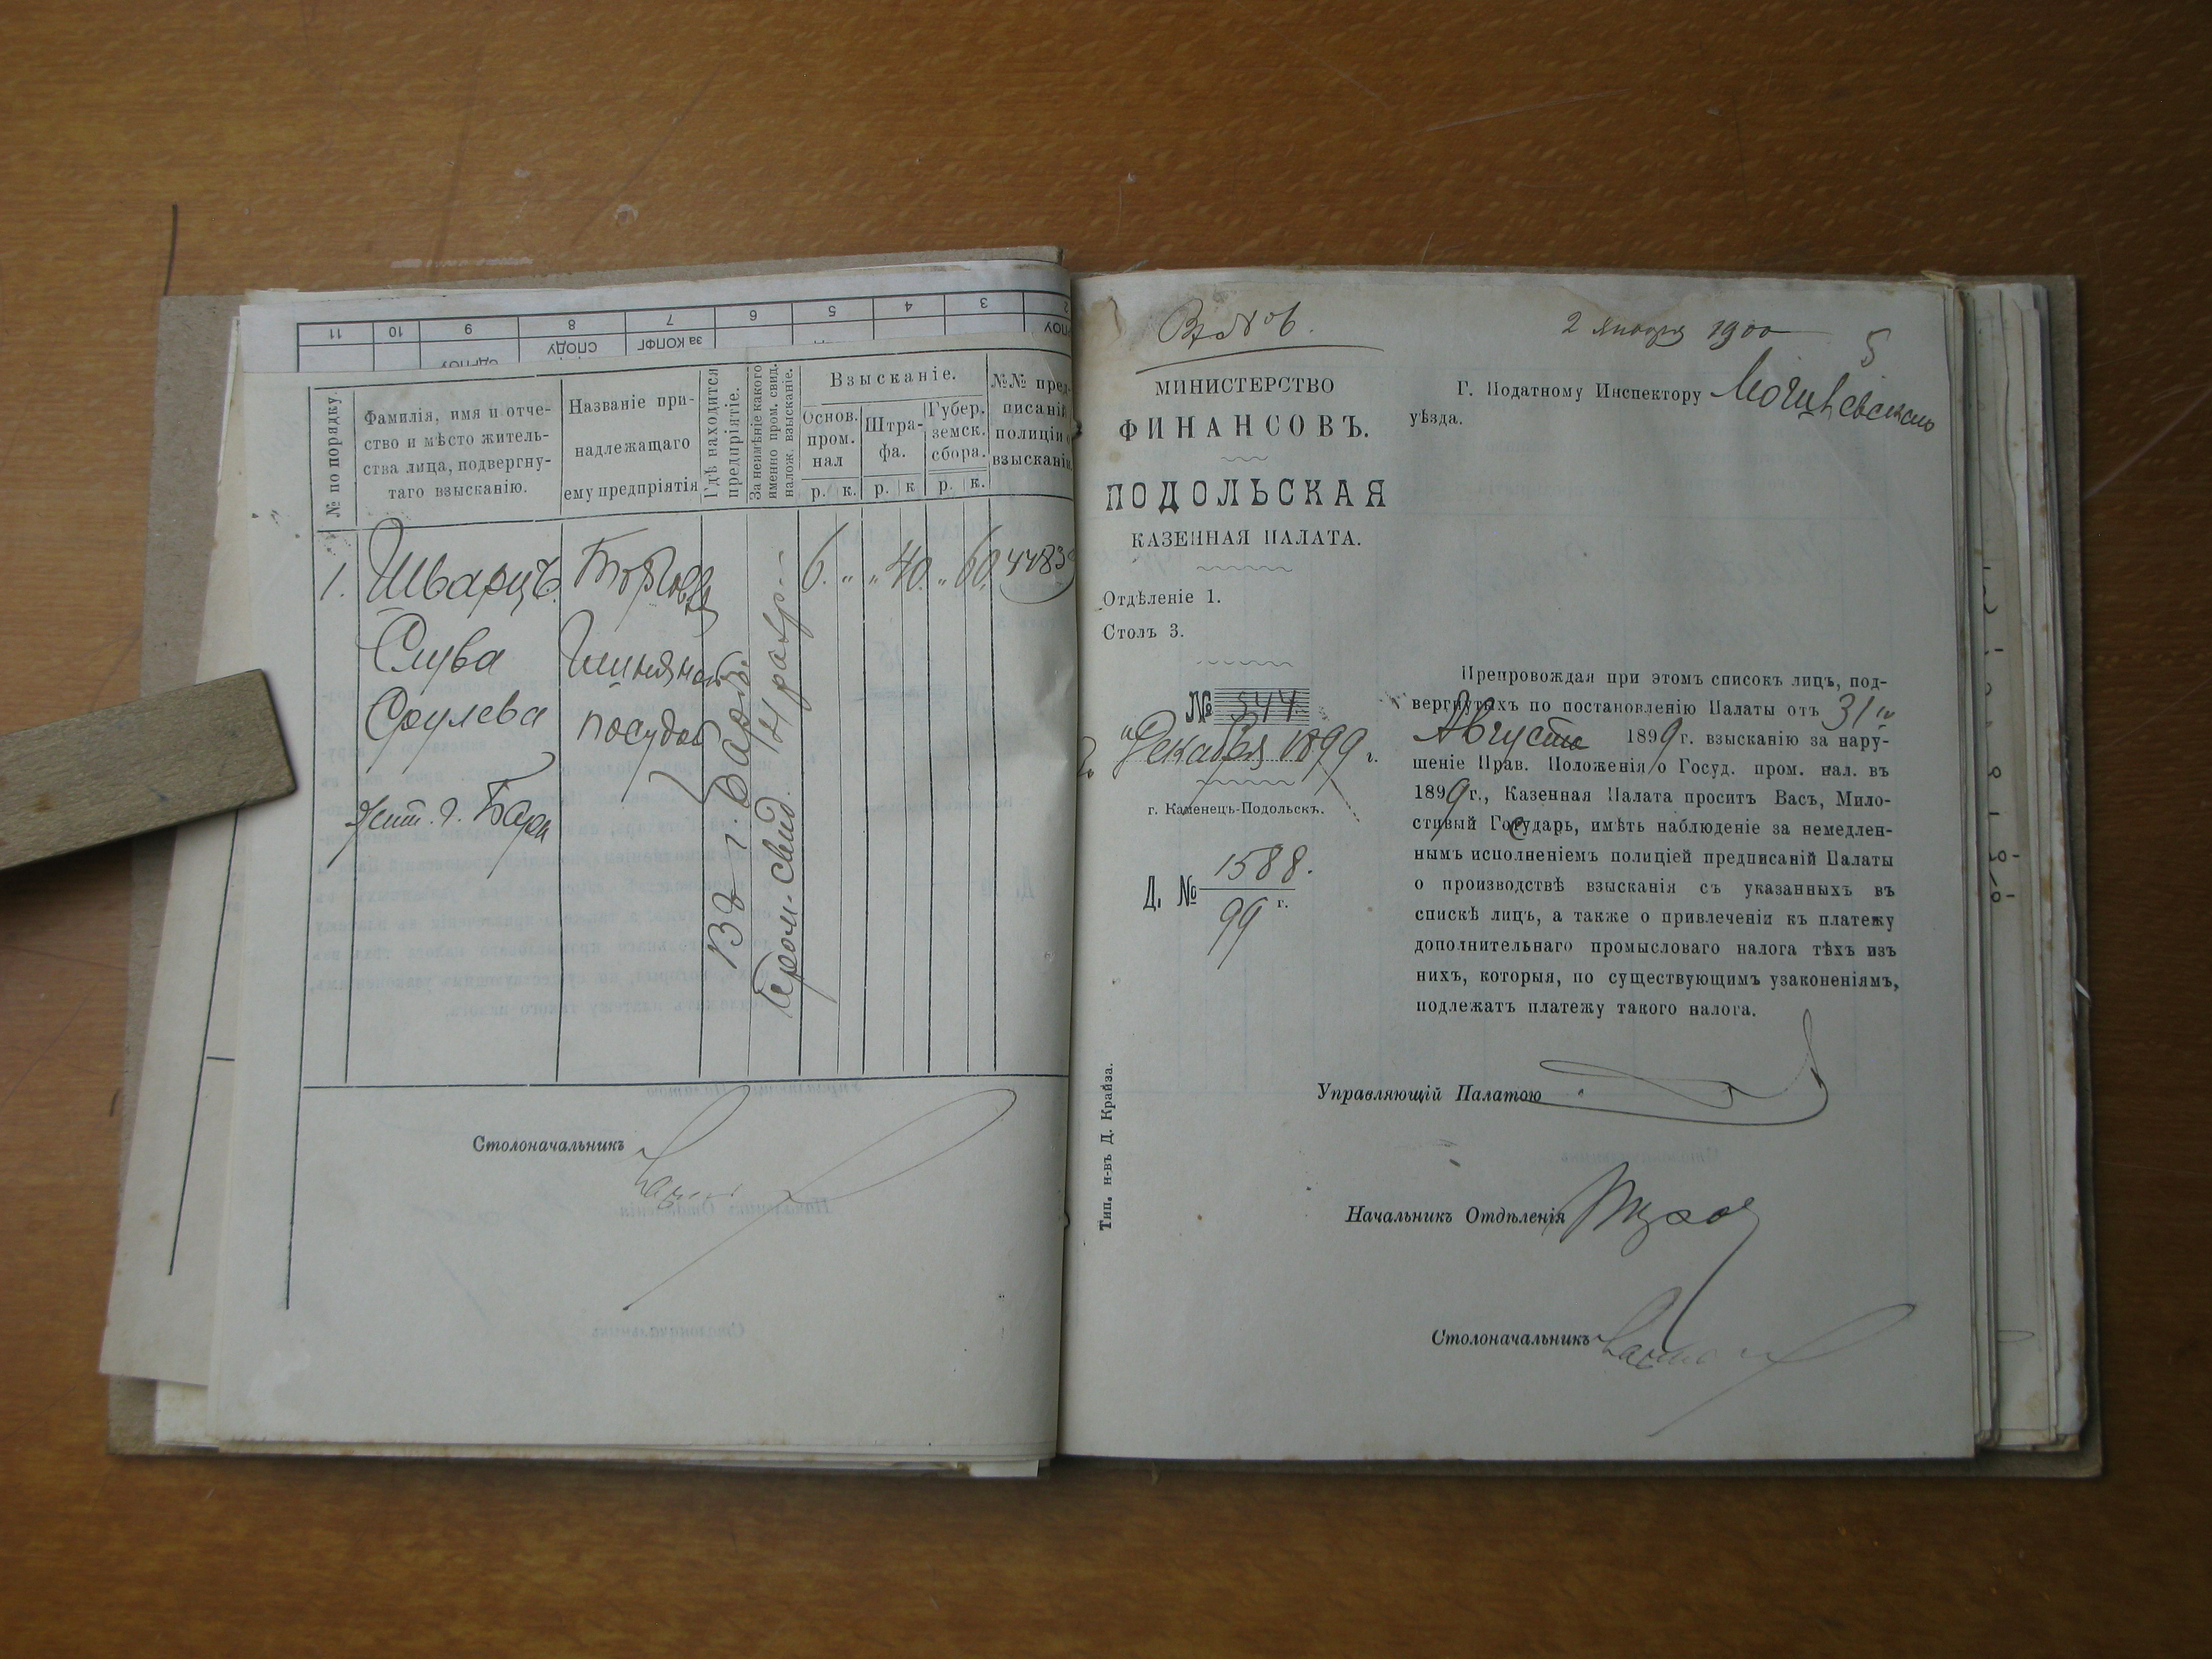 11 10 9 8 7 6 5 4 3 2
СПОДУ за КОПФГ
№ по порядку.
Фамилія, имя и отче-
ство и мѣсто житель-
ства лица, подвергну-
таго взысканію.
Названіе при-
надлежащаго
ему предпріятія
Гдѣ находится
предпріятіе.
За неимѣніе какого
именно пром. свид.
налож. взысканіе.
Взысканіе.
Основ.
пром.
нал
Штра-
фа.
Губер.
земск.
сбора.
р. к. р. к р. к.
№№ пред-
писаній
полиціи о
взысканіи.
1. Шварцъ 6. „ „ 40. „ 60.
Слува
Срулева посудой
Жит. г. Бара
Въ г. Барѣ
Пром. свид. 4 разр.
Столоначальникъ
2 Января 1900
5
МИНИСТЕРСТВО
ФИНАНСОВЪ.
ПОДОЛЬСКАЯ
КАЗЕННАЯ ПАЛАТА.
Отдѣленіе 1.
Столъ 3.
№ 544
Декабря 1899 г.
г. Каменецъ-Подольскъ.
Д. № 1588.
99 г.
Тип. н-въ Д. Крайза.
Г. Податному Инспектору Могилевскаго
уѣзда.
Препровождая при этомъ списокъ лицъ, под-
вергнутыхъ по постановленію Палаты отъ 31го
Августа 1899 г. взысканію за нару-
шеніе Прав. Положенія о Госуд. пром. нал. въ
1899 г., Казенная Палата проситъ Васъ, Мило-
стивый Государь, имѣть наблюденіе за немедлен-
нымъ исполненіемъ полиціей предписаній Палаты
о производствѣ взысканія съ указанныхъ въ
спискѣ лицъ, а также о привлеченіи къ платежу
дополнительнаго промысловаго налога тѣхъ изъ
нихъ, которыя, по существующимъ узаконеніямъ,
подлежатъ платежу такого налога.
Управляющій Палатою
Начальникъ Отдѣленія
Столоначальникъ